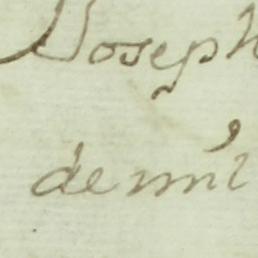 Joseph
de mi